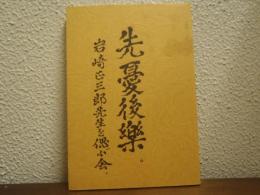 先憂後樂
岩崎正三郎先生を偲ぶ会